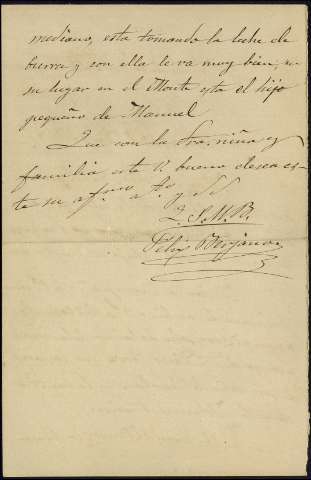 mediano, esta tomando la leche de
burra y con ella le va muy bien, en
su lugar en el Monte esta el hijo
pequeño de Manuel
Que con la Sra. niña y
familia este V. bueno desea es-
te su af.mo a.º y S. S.
Q. S. M. B.
Felix